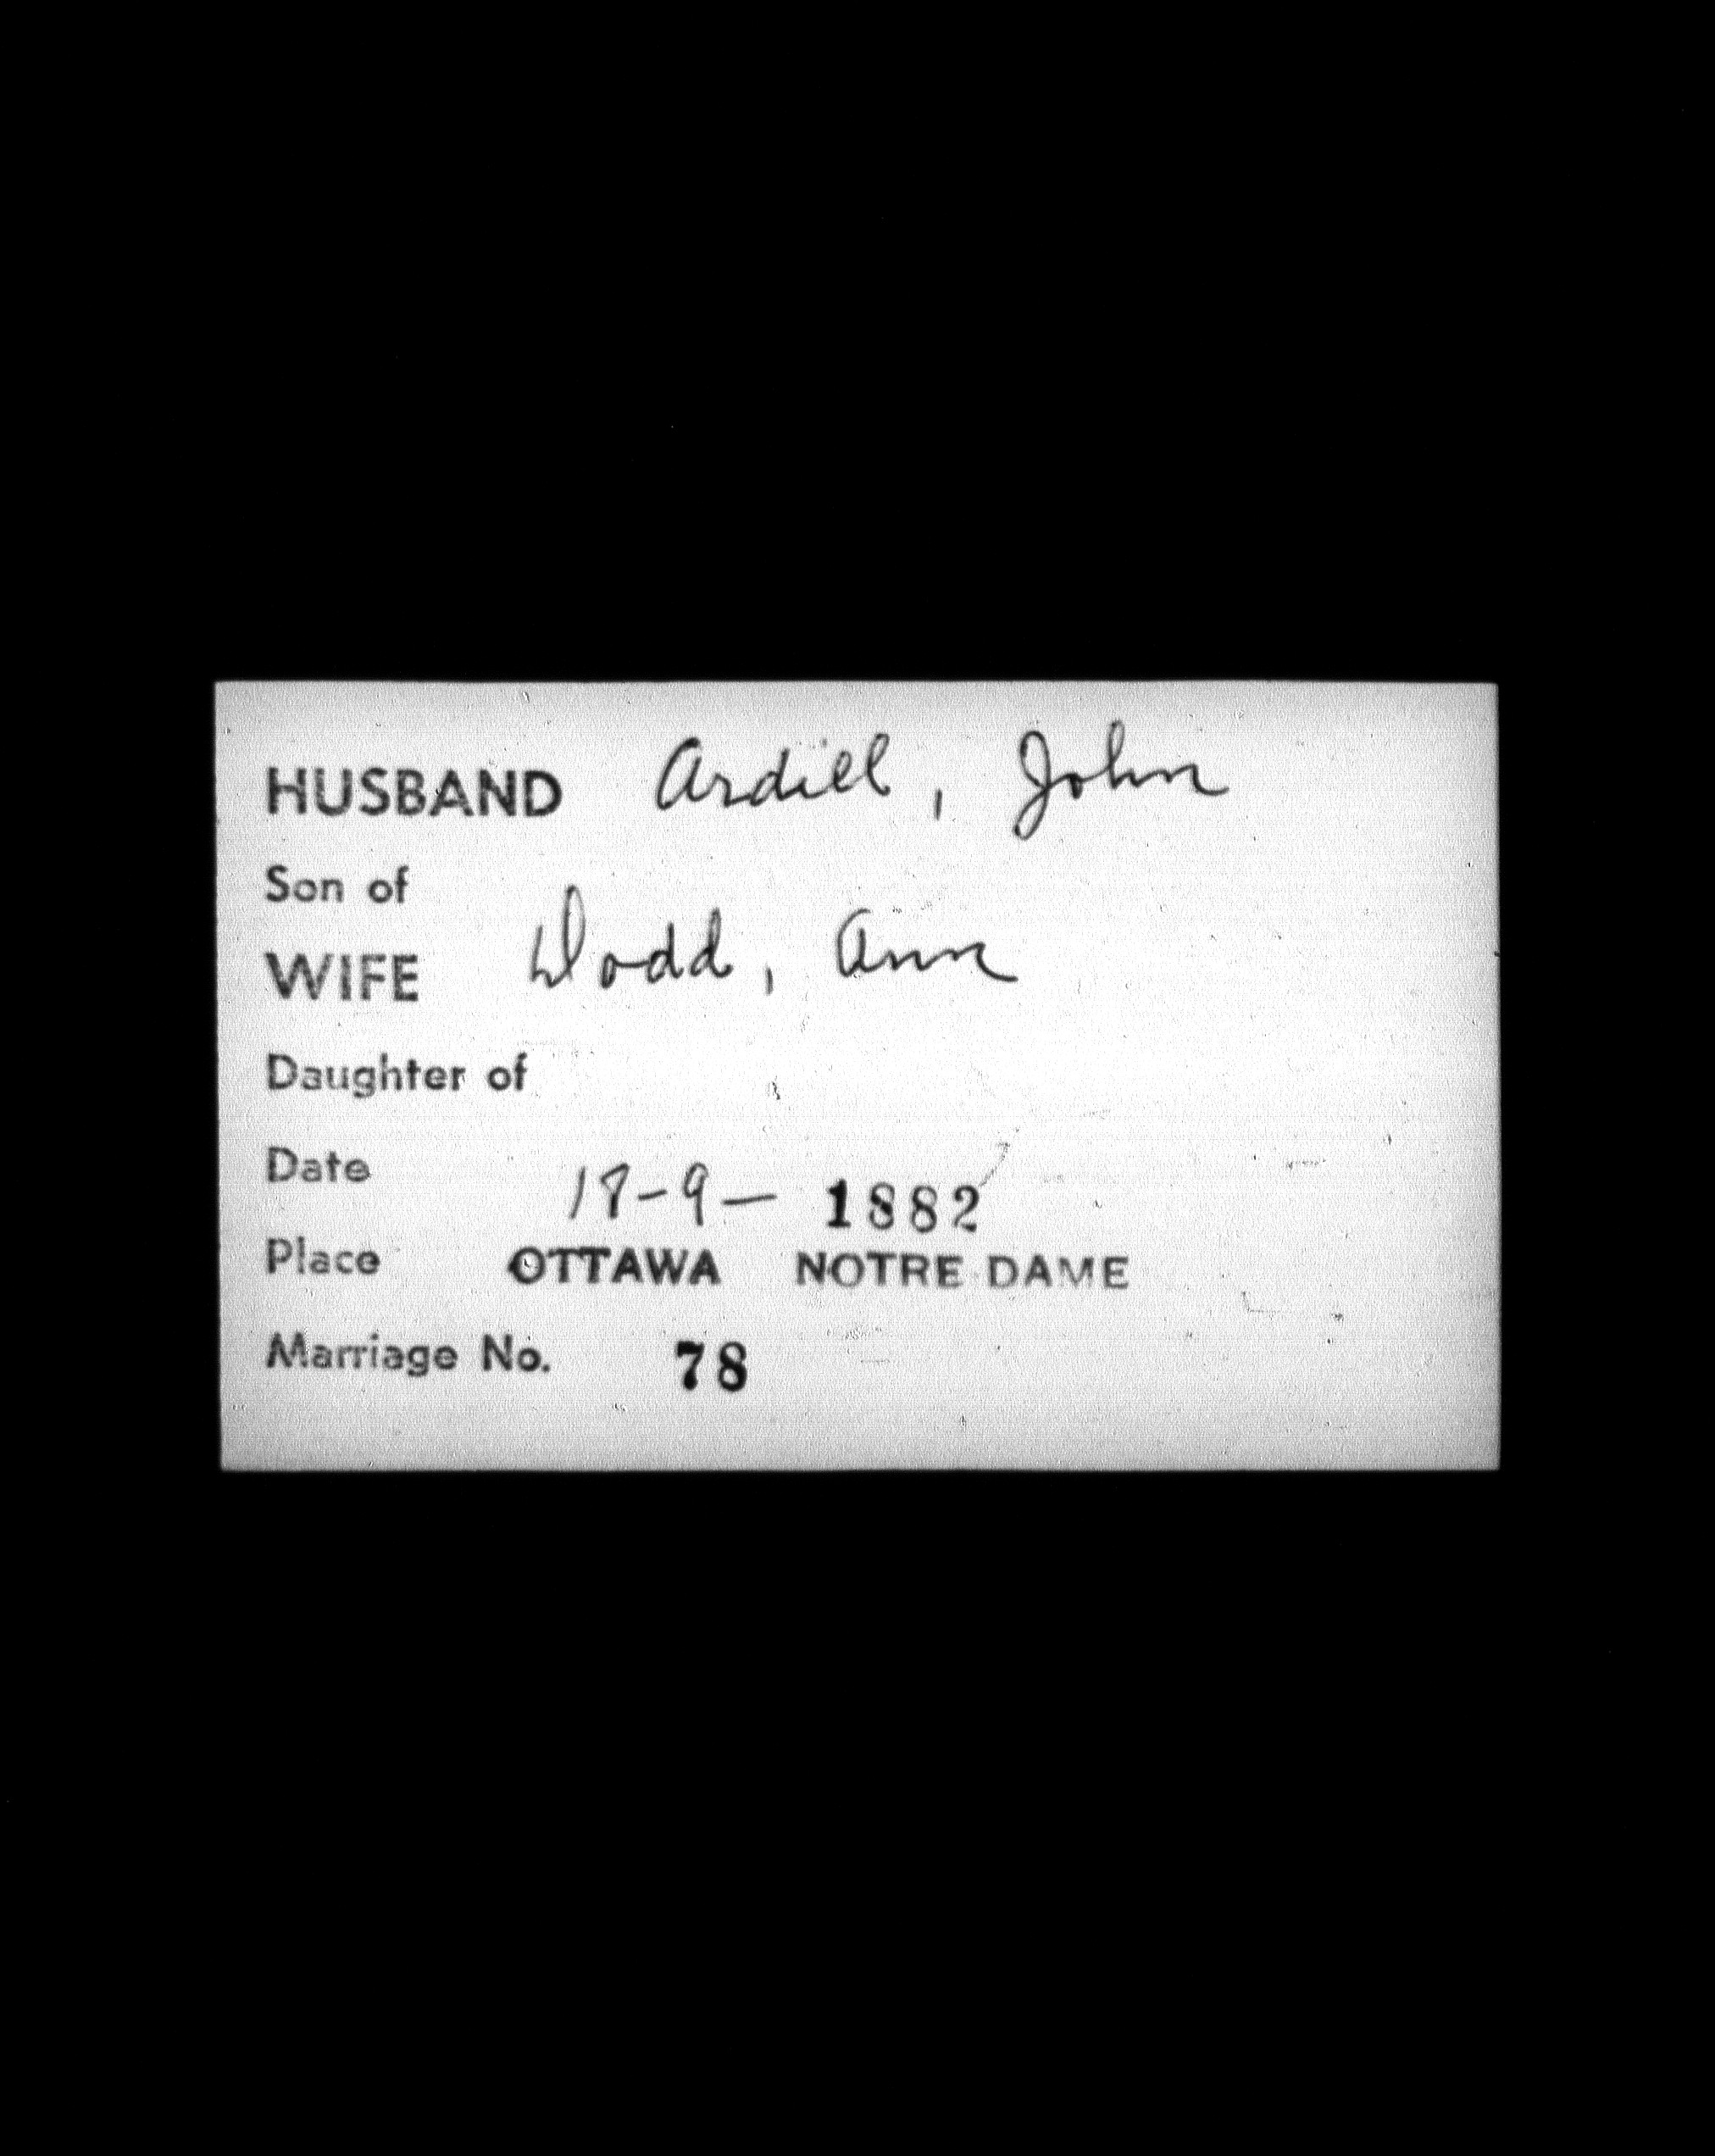 HUSBAND Ardill, John
Son of
WIFE Dodd, Ann
Daughter of
Date 18-9- 1882
Place OTTAWA NOTRE DAME
Marriage No. 78